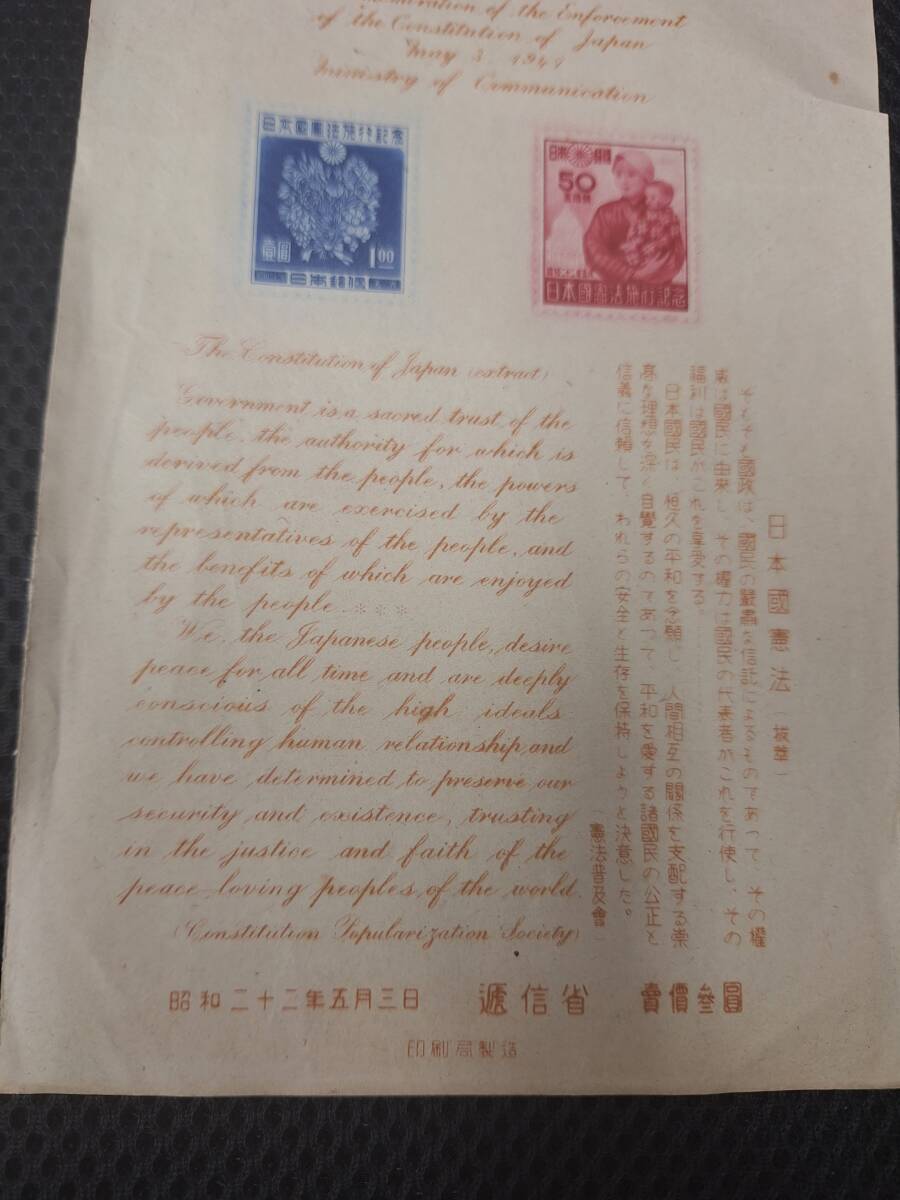 of the Enforcement
of the Constitution of Japan
May 3, 1947
Ministry of Communication
日本國憲法施行記念
壹圓 1.00
日本郵便
日本郵便
50
日本國憲法施行記念
The Constitution of Japan (extract)
Government is a sacred trust of the
people, the authority for which is
derived from the people, the powers
of which are exercised by the
representatives of the people, and
the benefits of which are enjoyed
by the people.※※※
We, the Japanese people, desire
peace for all time and are deeply
conscious of the high ideals
controlling human relationship, and
we have determined to preserve our
security and existence, trusting
in the justice and faith of the
peace-loving peoples of the world.
(Constitution Popularization Society)
日本國憲法(拔萃)
そもそも國政は、國民の嚴肅な信託によるものであつて、その權
威は國民に由来し、その權力は國民の代表者がこれを行使し、その
福利は國民がこれを享受する。
日本國民は、恒久の平和を念願し、人間相互の關係を支配する崇
高な理想を深く自覺するのであつて、平和を愛する諸國民の公正と
信義に信頼して、われらの安全と生存を保持しようと決意した。
(憲法普及會)
昭和二十二年五月三日 遞信省 賣價參圓
印刷局製造